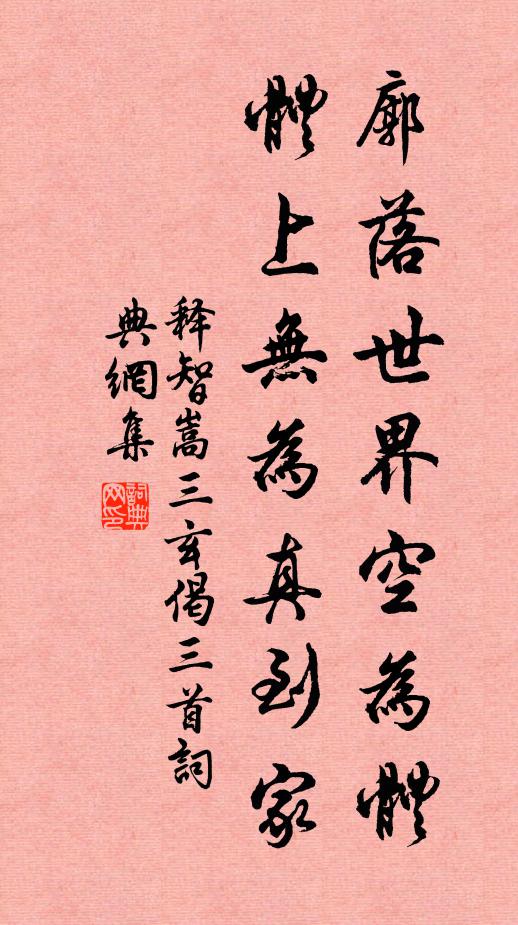 廓落世界空為體
體上無為真到家
释智嵩三玄偈三首詞
典網集
詞典
网印